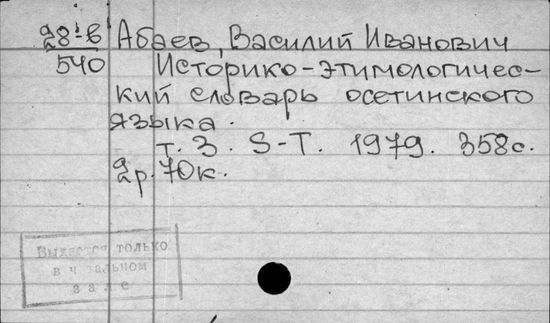 28-в Абаев, Василий Иванович
540 Историко-этимологичес-
кий словарь осетинского
языка.
т. 3. S-T. 1979. 358с.
2р. 70к.
Выдается только
в читальном
зале